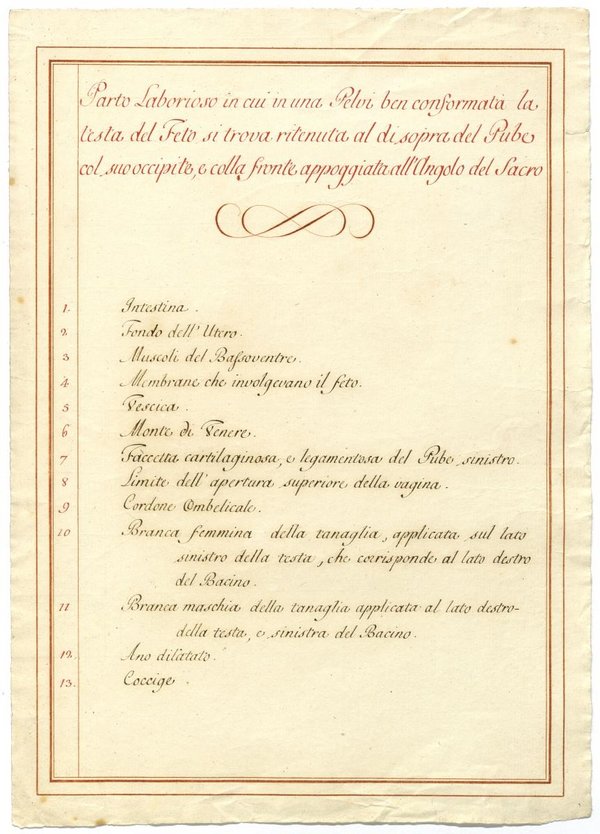 Parto Laborioso in cui in una Pelvi ben conformata la
testa del Feto si trova ritenuta al di sopra del Pube
col suo occipite, e colla fronte appoggiata all'Angolo del Sacro
1. Intestina.
2 Fondo dell'Utero.
3 Muscoli del Bassoventre.
4 Membrane che involgevano il feto.
5 Vescica.
6 Monte di Venere.
7 Faccetta cartilaginosa, e legamentosa del Pube sinistro.
8 Limite dell'apertura superiore della vagina.
9 Cordone Ombelicale.
10 Branca femmina della tanaglia, applicata sul lato
sinistro della testa, che corrisponde al lato destro
del Bacino.
11 Branca maschia della tanaglia applicata al lato destro
della testa, e sinistra del Bacino.
12. Ano dilatato.
13. Coccige.